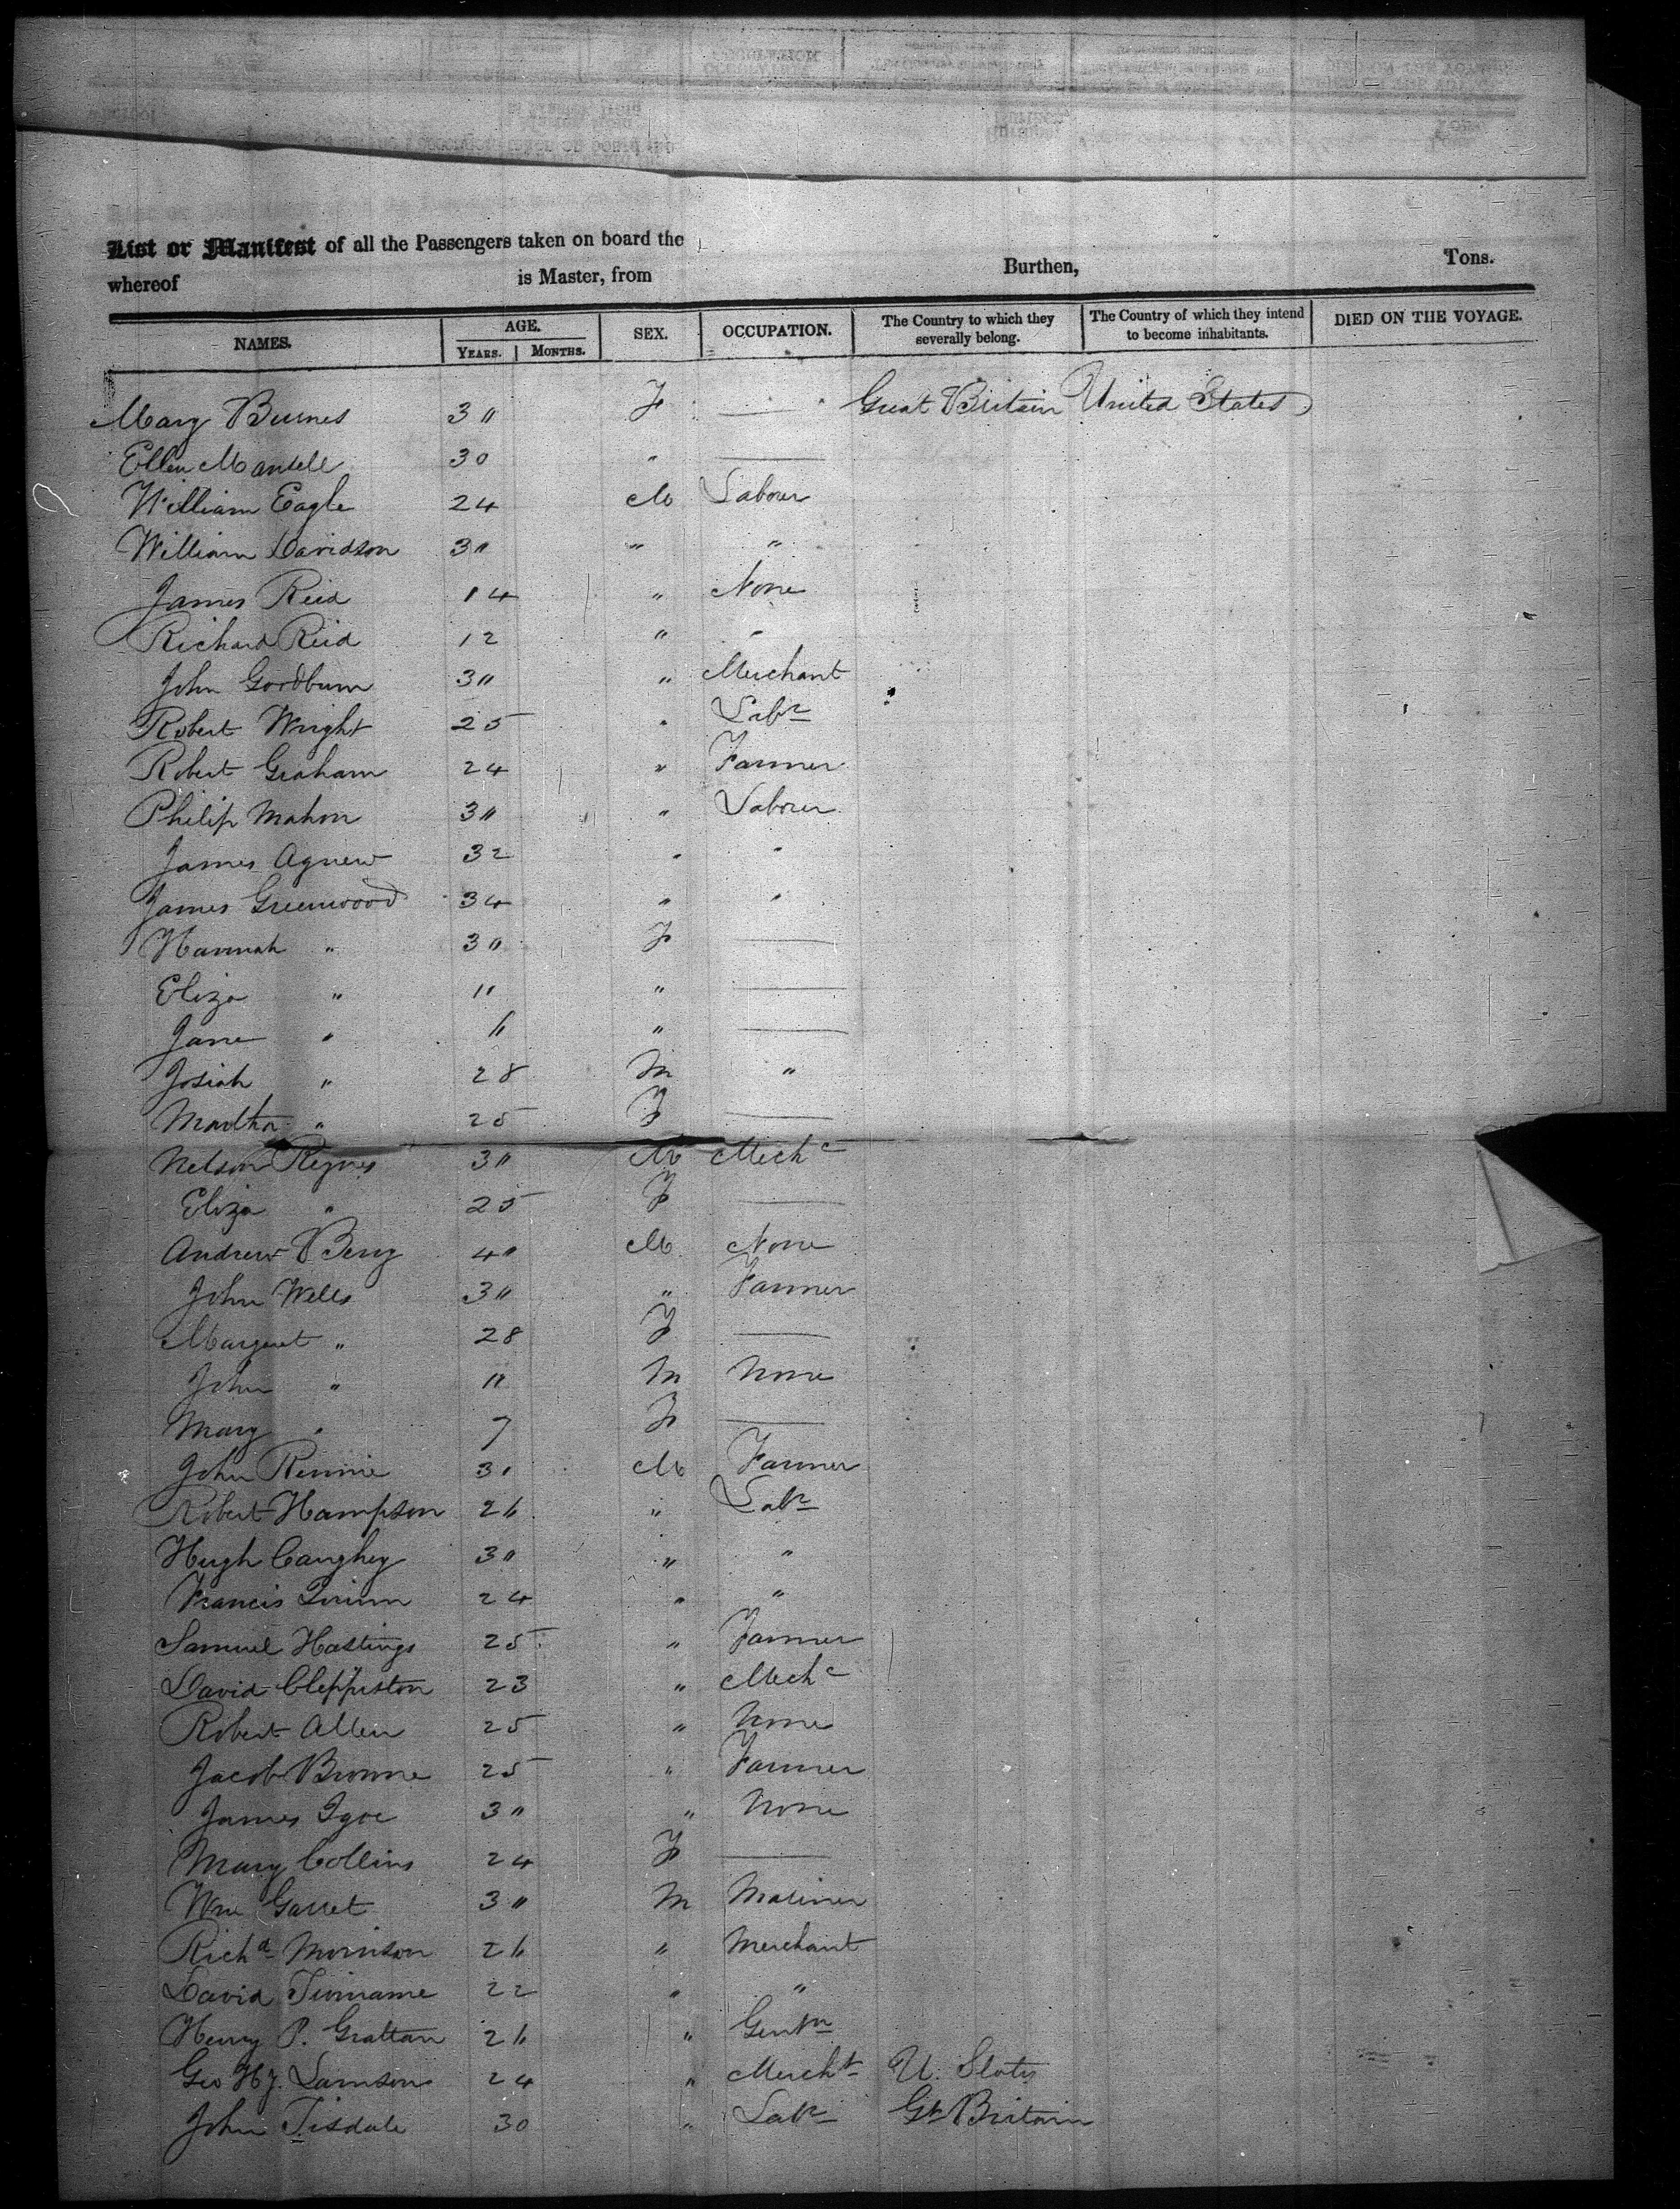 List or Manifest of all the Passengers taken on board the
Burthen, Tons.
whereof is Master, from
NAMES. AGE. SEX. OCCUPATION. The Country to which they severally belong. The Country of which they intend to become inhabitants. DIED ON THE VOYAGE.
YEARS. MONTHS.
Mary Burnes 3" F — Great Britain United States
Ellen Mansell 30 " —
William Eagle 24 M Laborer
William Davidson 3" " "
James Reid 14 " None
Richard Reid 12 " "
John Goodburn 3" " Merchant
Robert Wright 25 " Labr
Robert Graham 24 " Farmer
Philip Mahon 3" " Laborer
James Agnew 32 " "
James Greenwood 34 " "
Hannah " 3" F —
Eliza " 11 " —
Jane " 6 " —
Josiah " 28 M "
Martha " 25 F —
Nelson Reynes 3" M Mechc
Eliza " 25 F —
Andrew Berry 4" M None
John Wells 3" " Farmer
Margaret " 28 F —
John " 11 M None
Mary " 7 F —
John Rennie 3" M Farmer
Robert Hampson 26 " Labr
Hugh Caughey 3" " "
Francis 24 " "
Samuel Hastings 25 " Farmer
David Cleppiston 23 " Mechc
Robert Allen 25 " None
Jacob Browne 25 " Farmer
James Igoe 3" " None
Mary Collins 24 F —
Wm Garret 3" M Mariner
Richd Morrison 26 " Merchant
David 22 " "
Henry P. Grattan 26 " Gentn
Geo Hy. Lamson 24 " Mercht U. States
John Tisdale 30 " Labr Gt Britain